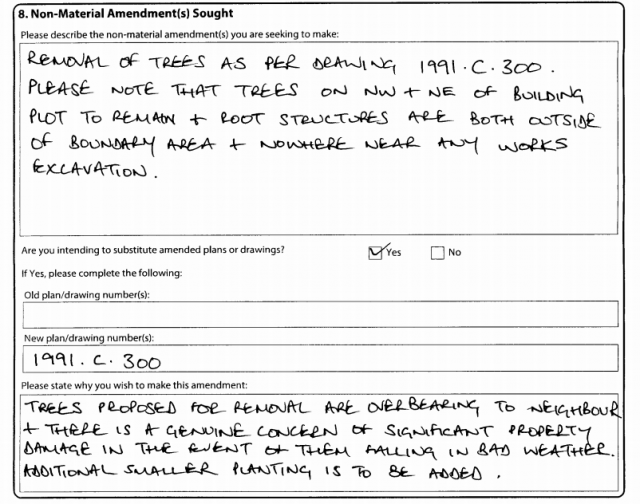 8. Non-Material Amendment(s) Sought
Please describe the non-material amendment(s) you are seeking to make:
REMOVAL OF TREES AS PER DRAWING 1991.C.300.
PLEASE NOTE THAT TREES ON NW + NE OF BUILDING
PLOT TO REMAIN + ROOT STRUCTURES ARE BOTH OUTSIDE
OF BOUNDARY AREA + NOWHERE NEAR ANY WORKS
EXCAVATION.
Are you intending to substitute amended plans or drawings? Yes No
If Yes, please complete the following:
Old plan/drawing number(s):
New plan/drawing number(s):
1991.C.300
Please state why you wish to make this amendment:
TREES PROPOSED FOR REMOVAL ARE OVERBEARING TO NEIGHBOUR
+ THERE IS A GENUINE CONCERN OF SIGNIFICANT PROPERTY
DAMAGE IN THE EVENT OF THEM FALLING IN BAD WEATHER.
ADDITIONAL SMALLER PLANTING IS TO BE ADDED.